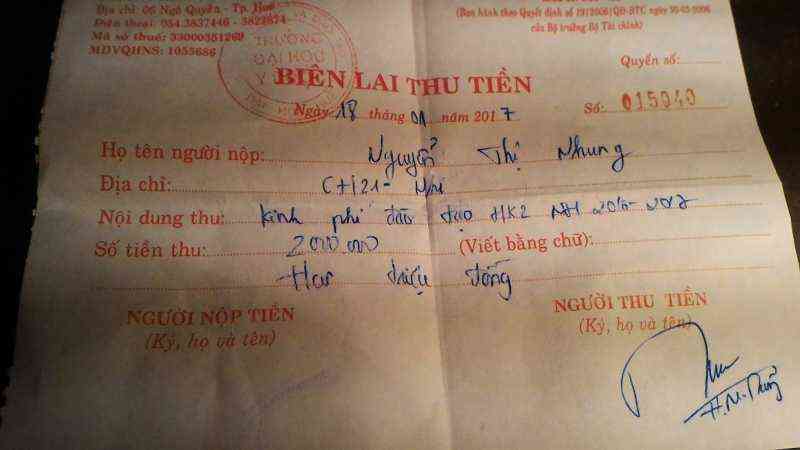 Địa chỉ: 06 Ngô Quyền - Tp. Huế
Điện thoại: 054.3837446 - 3822874
Mã số thuế: 33000351269
MDVQHNS: 1055686
(Ban hành theo Quyết định số 19/2006/QĐ-BTC ngày 30-03-2006
của Bộ trưởng Bộ Tài chính)
TRƯỜNG
ĐẠI HỌC
Y
Quyển số:
BIÊN LAI THU TIỀN
Ngày 18 tháng 01 năm 2017
Số: 015040
Họ tên người nộp: Nguyễn Thị Nhung
Địa chỉ:
Nội dung thu: Kinh phí đào tạo HK2 NH 2016-2017
Số tiền thu: 2000.000 (Viết bằng chữ):
Hai triệu đồng
NGƯỜI NỘP TIỀN
(Ký, họ và tên)
NGƯỜI THU TIỀN
(Ký, họ và tên)